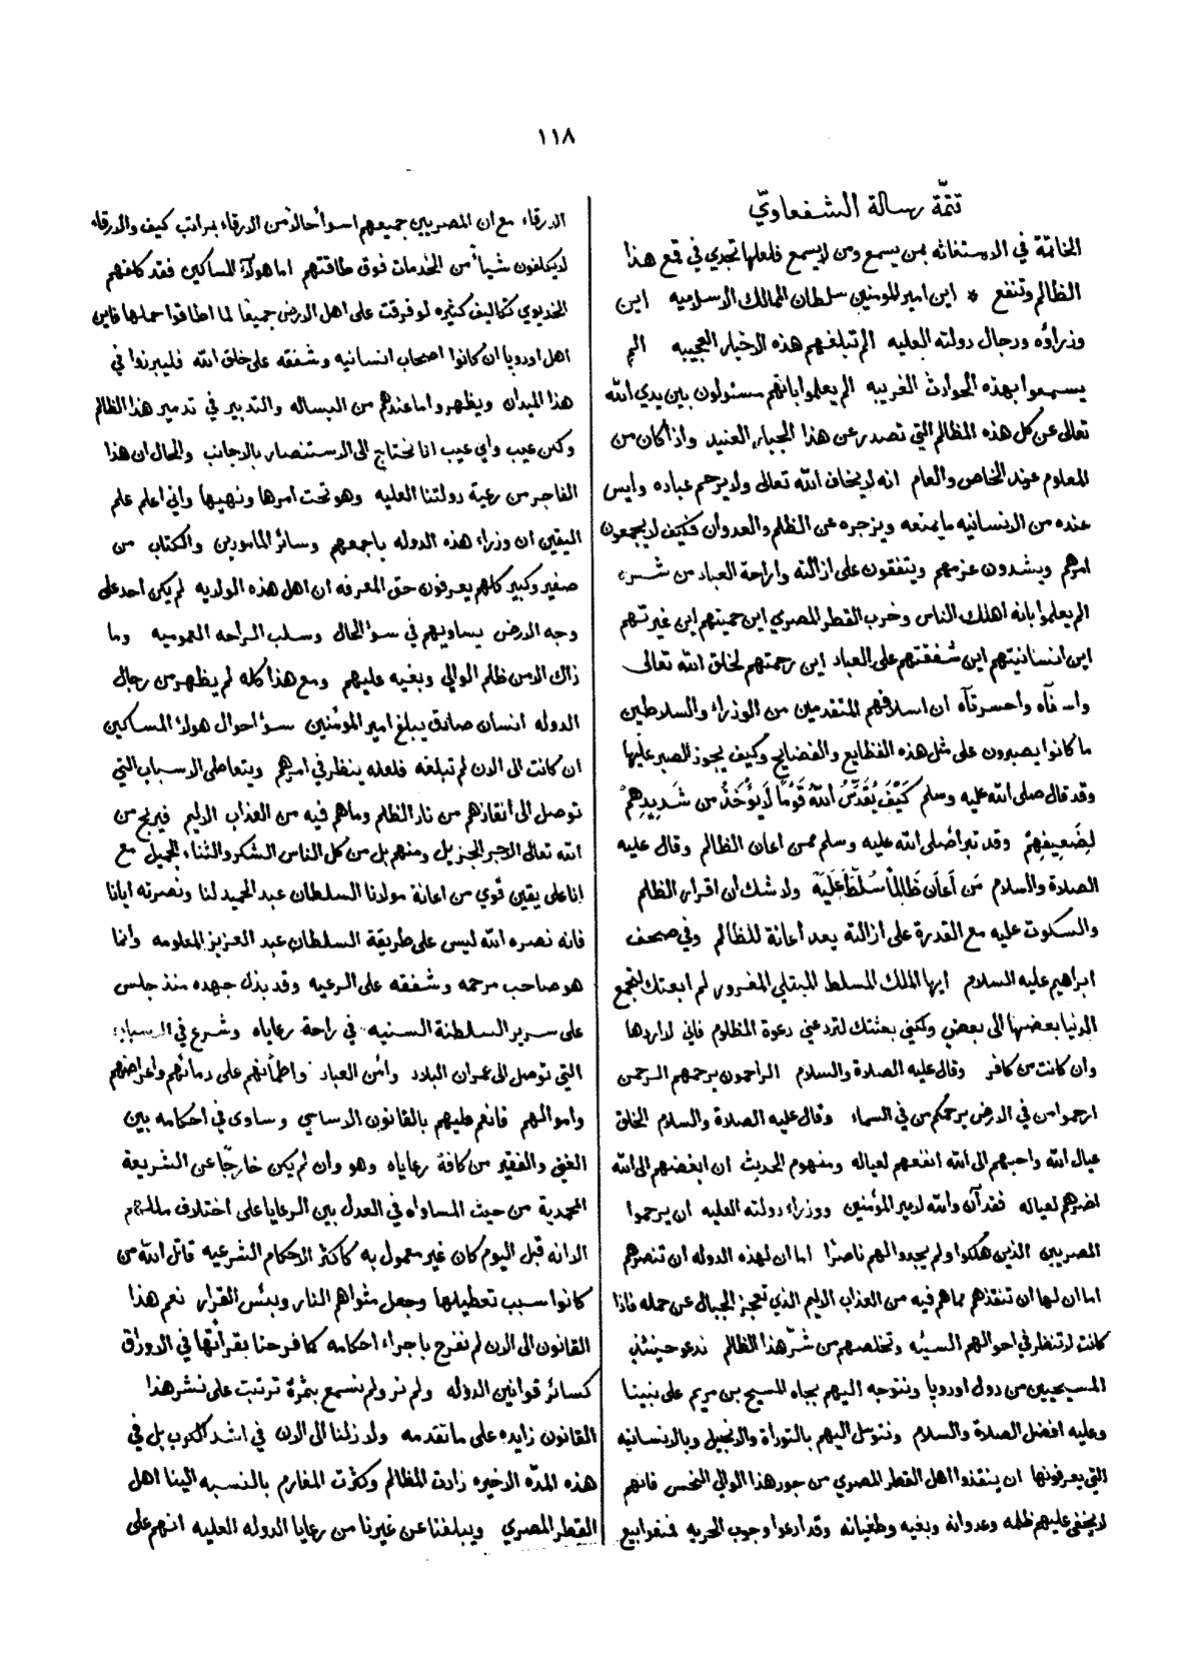 ١١٨
تتمّة رسالة الشفعاويّ
الخاتمة في الاستغاثه بمن يسمع ومن لايسمع فلعلها تجدي في قمع هذا
الظالم وتنفع * اين امير المومنين سلطان الممالك الاسلاميه اين
وزراؤه ورجال دولته العليه الم تبلغهم هذه الاخبار العجيبه الم
يسمعوا بهذه الحوادث الغريبه الم يعلموا بانهم مسئولون بين يدي الله
تعالى عن كل هذه المظالم التي تصدر عن هذا الجبار العنيد واذا كان من
المعلوم عند الخاص والعام انه لايخاف الله تعالى ولا يرحم عباده وليس
عنده من الانسانيه ما يمنعه ويزجره عن الظلم والعدوان فكيف لا يجمعون
امرهم ويشدون عزمهم ويتفقون على ازالته واراحة العباد من شره
الم يعلموا بانه اهلك الناس وخرب القطر المصري اين حميتهم اين غيرتهم
اين انسانيتهم اين شفقتهم على العباد اين رحمتهم لخلق الله تعالى
وا سفآه واحسرتآه ان اسلافهم المتقدمين من الوزراء والسلاطين
ما كانوا يصبرون على مثل هذه الفظايع والفضايح وكيف يجوز الصبر عليها
وقد قال صلى الله عليه وسلم كَيْفَ يُقَدِّسُ اللهُ قَوْمًا لَا يُؤْخَذُ من شَدِيدِهِمْ
لِضَعِيفِهِمْ وقد تبرأ صلى الله عليه وسلم ممن اعان الظالم وقال عليه
الصلاة والسلام مَن أَعَان ظَالِمًا سُلِّطَ عَلَيْهِ ولا شك ان اقرار الظلم
والسكوت عليه مع القدرة على ازالته يعد اعانة للظالم وفي صحف
ابراهيم عليه السلام ايها الملك المسلط المبتلي المغرور لم ابعثك لتجمع
الدنيا بعضها الى بعض ولكني بعثتك لترد عني دعوة المظلوم فاني لا اردها
وان كانت من كافر وقال عليه الصلاة والسلام الراحمون يرحمهم الرحمن
ارحموا من في الارض يرحمكم من في السماء وقال عليه الصلاة والسلام الخلق
عيال الله واحبهم الى الله انفعهم لعياله ومفهوم الحديث ان ابغضهم الى الله
اضرهم لعياله فقد آن والله لامير المؤمنين ووزراء دولته العليه ان يرحموا
المصريين الذين هلكوا ولم يجدوا لهم ناصرًا اما ان لهذه الدوله ان تنصرهم
اما ان لها ان تنقذهم مما هم فيه من العذاب الاليم الذي تعجز الجبال عن حمله فاذا
كانت لا تنظر في احوالهم السيئه وتخلصهم من شرّ هذا الظالم ندعو حينئذٍ
المسيحيين من دول اوروبا ونتوجه اليهم بجاه المسيح بن مريم على نبينا
وعليه افضل الصلاة والسلام ونتوسل اليهم بالتوراة والانجيل وبالانسانيه
التي يعرفونها ان ينقذوا اهل القطر المصري من جور هذا الوالي النحس فانهم
لا يخفى عليهم ظلمه وعدوانه وبغيه وطغيانه وقد ادعوا وجوب الحريه فمنعوا بيع
الارقاء مع ان المصريين جميعهم اسوأ حالاً من الارقاء بمراتب كيف والارقاء
لا يكلفون شيأً من الخدمات فوق طاقتهم اما هولآء المساكين فقد كلفهم
الخديوي تكاليف كثيره لو فرقت على اهل الارض جميعًا لما اطاقوا حملها فاين
اهل اوروبا ان كانوا اصحاب انسانيه وشفقه على خلق الله فليبرزوا في
هذا الميدان ويظهروا ما عندهم من البساله والتدبير في تدمير هذا الظالم
ولكن عيب واي عيب انا نحتاج الى الاستنصار بالاجانب والحال ان هذا
الفاجر من رعية دولتنا العليه وهو تحت امرها ونهيها واني اعلم علم
اليقين ان وزراء هذه الدوله باجمعهم وسائر المامورين والكتاب من
صغير وكبير كلهم يعرفون حق المعرفه ان اهل هذه الولايه لم يكن احد على
وجه الارض يساويهم في سؤ الحال وسلب الراحه العموميه وما
ذاك الا من ظلم الوالي وبغيه عليهم ومع هذا كله لم يظهر من رجال
الدوله انسان صادق يبلغ امير المؤمنين سؤ احوال هولاء المساكين
ان كانت الى الان لم تبلغه فلعله ينظر في امرهم ويتعاطى الاسباب التي
توصل الى انقاذهم من نار الظلم وما هم فيه من العذاب الاليم فيربح من
الله تعالى الاجر الجزيل ومنهم بل من كل الناس الشكر والثناء الجميل مع
انا على يقين قوي من اعانة مولانا السلطان عبد الحميد لنا ونصرته ايانا
فانه نصره الله ليس على طريقة السلطان عبد العزيز المعلومه وانما
هو صاحب مرحمه وشفقه على الرعيه وقد بذل جهده منذ جلس
على سرير السلطنة السنيه في راحة رعاياه وشرع في الاسباب
التي توصل الى عمران البلاد وأمن العباد واطمأنهم على دمائهم واعراضهم
واموالهم فانعم عليهم بالقانون الاساسي وساوى في احكامه بين
الغني والفقير من كافة رعاياه وهو وان لم يكن خارجًا عن الشريعة
المحمدية من حيث المساواه في العدل بين الرعايا على اختلاف مللهم
الا انه قبل اليوم كان غير معمول به كاكثر الاحكام الشرعيه قاتل الله من
كانوا سبب تعطيلها وجعل مثواهم النار وبئس القرار نعم هذا
القانون الى الان لم نفرح باجراء احكامه كما فرحنا بقرأتها في الاوراق
كسائر قوانين الدوله ولم نر ولم نسمع بثمرة ترتبت على نشر هذا
القانون زايده على ما تقدمه ولا زلنا الى الان في اشد الكرب بل في
هذه المدّه الاخيره زادت المظالم وكثرت المغارم بالنسبه الينا اهل
القطر المصري ويبلغنا عن غيرنا من رعايا الدوله العليه انهم على